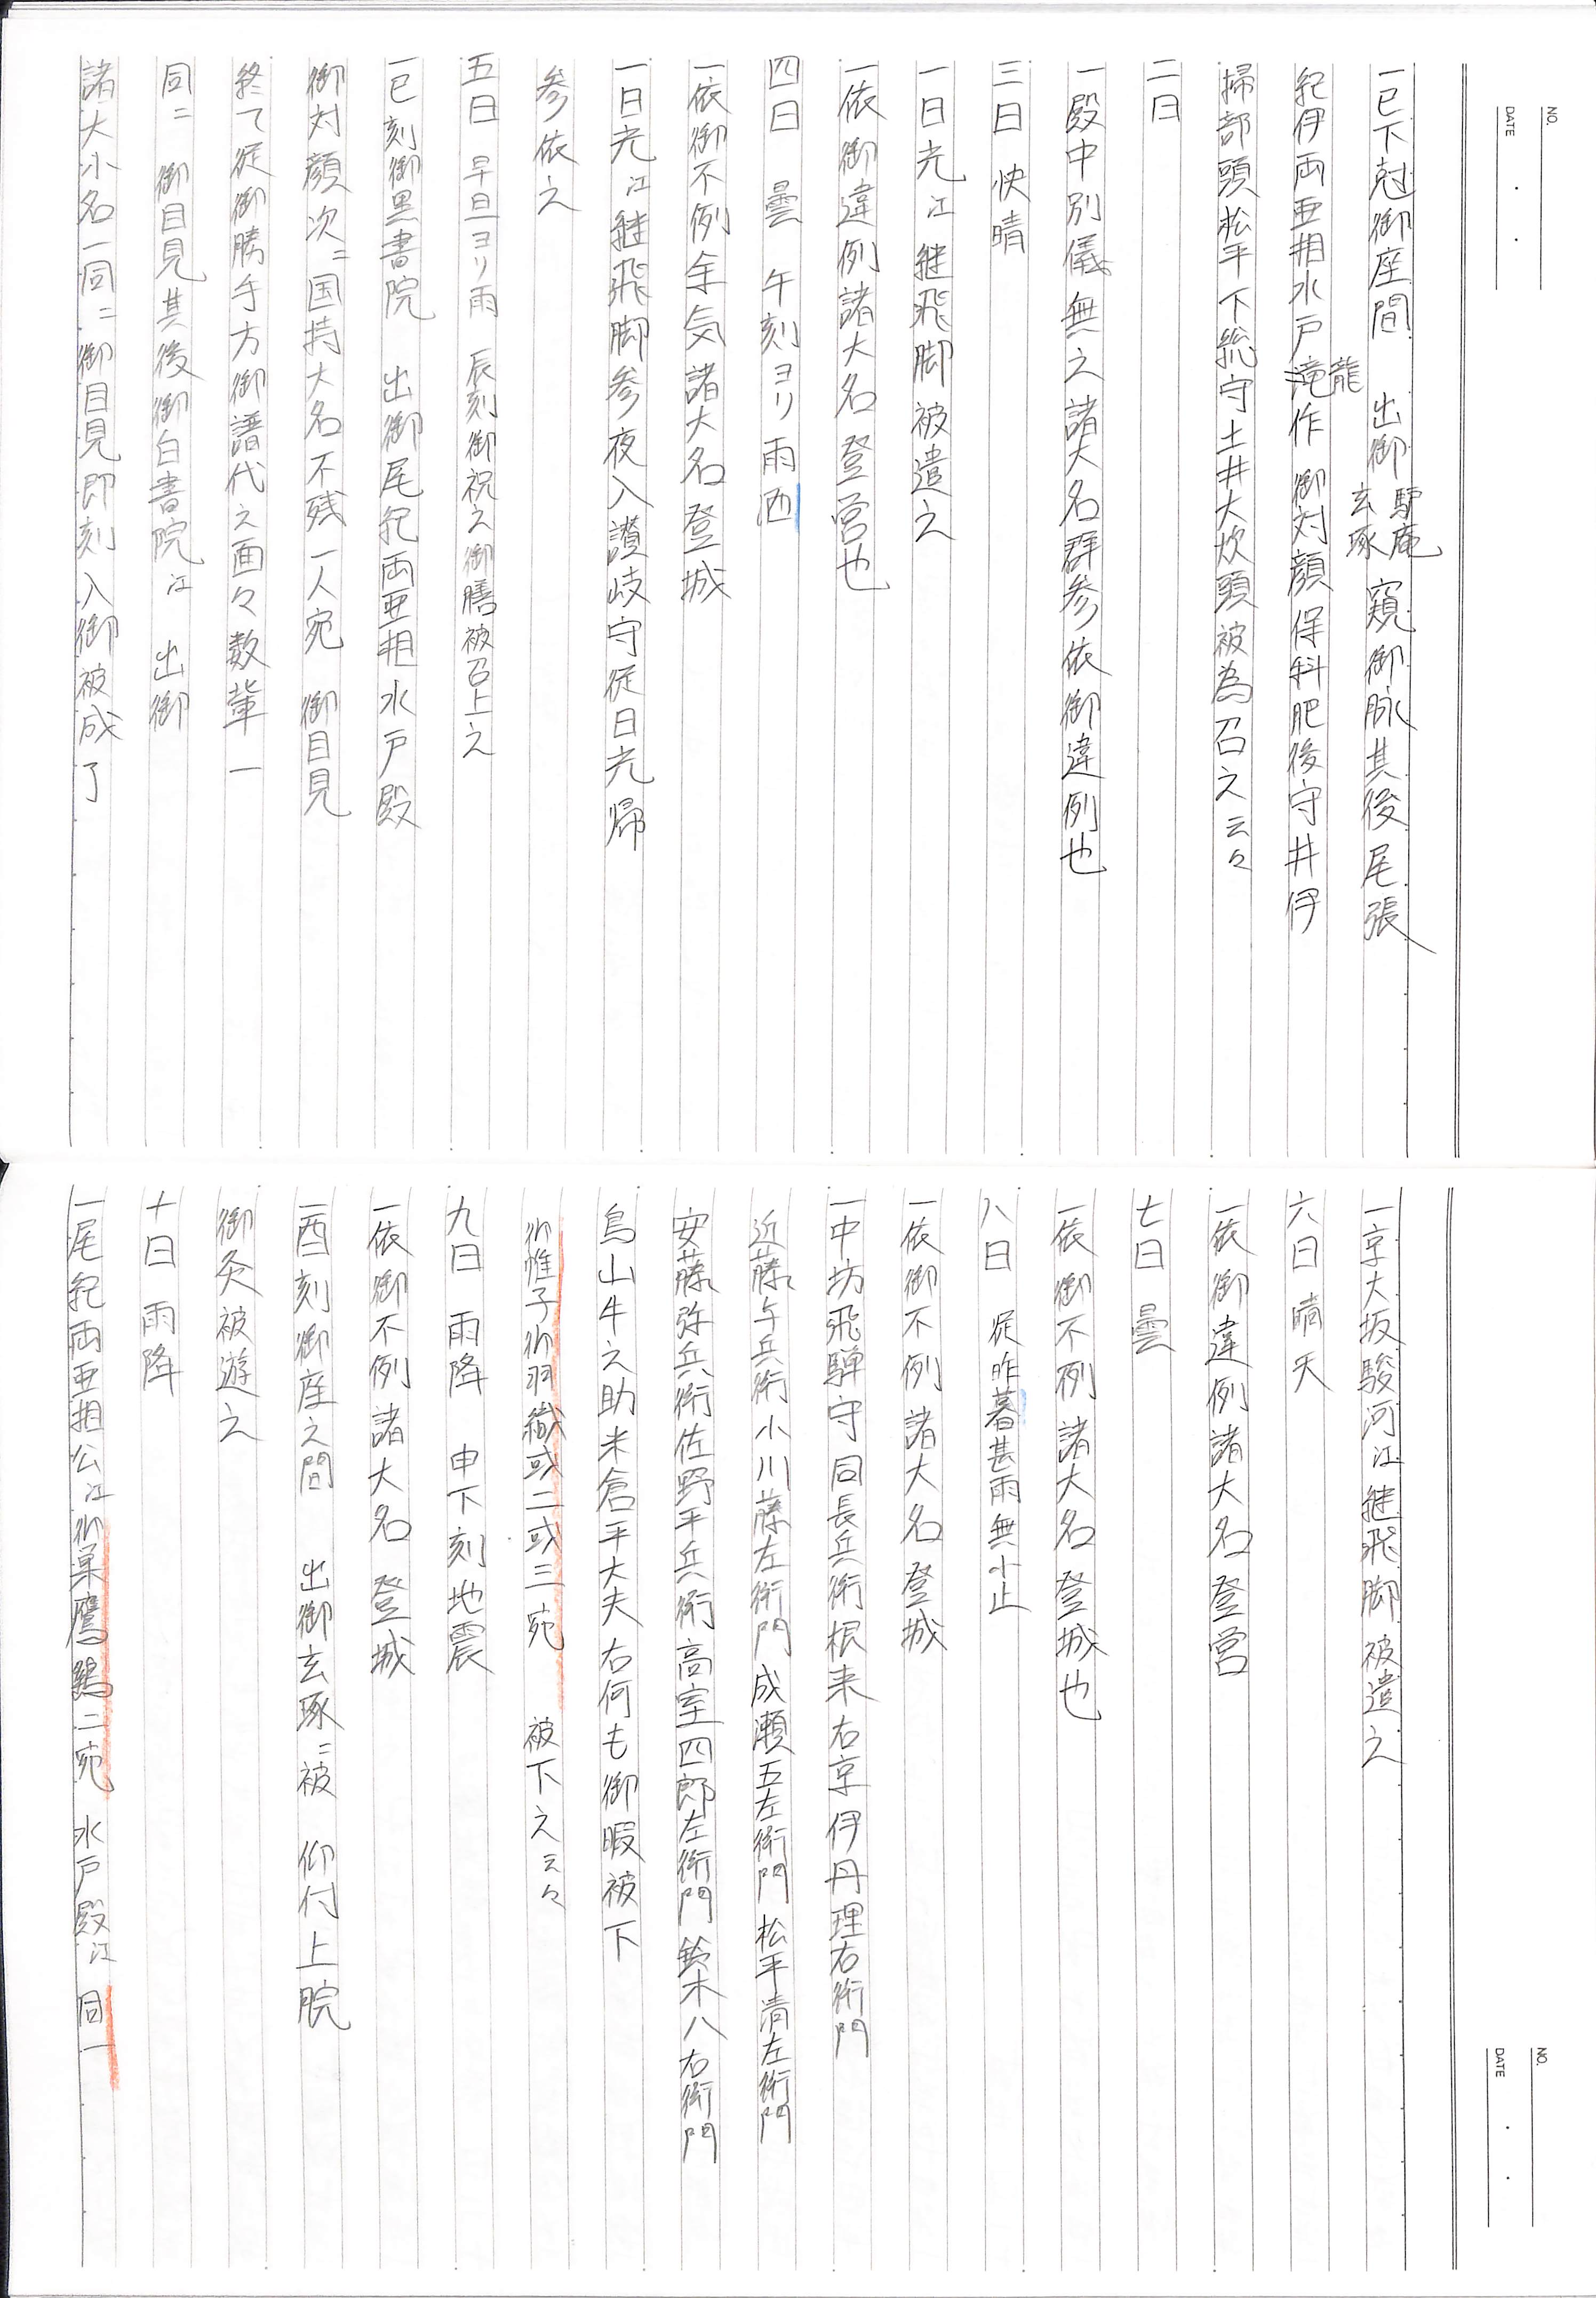 NO.
DATE
一巳下尅御座間　出御驢庵玄琢窺御脉其後尾張
紀伊両亜相水戸滝龍作　御対顔保科肥後守井伊
掃部頭松平下総守土井大炊頭被為召之云々
二日
一殿中別儀無之諸大名群参依御違例也
三日　快晴
一日光江継飛脚被遣之
一依御違例諸大名登営也
四日　曇　午刻ヨリ雨洒
一依御不例余気諸大名登城
一日光江継飛脚参夜入讃岐守従日光帰
参依之
五日　早旦ヨリ雨　辰刻御祝之御膳被召上之
一巳刻御黒書院　出御尾紀両亜相水戸殿
御対顔次ニ国持大名不残一人宛　御目見
終て従御勝手方御譜代之面々数輩一
同ニ　御目見其後御白書院江　出御
諸大小名一同ニ御目見即刻入御被成了
NO.
DATE
一京大坂駿河江継飛脚被遣之
六日　晴天
一依御違例諸大名登営
七日　曇
一依御不例諸大名登城也
八日　従昨暮甚雨無小止
一依御不例諸大名登城
一中坊飛騨守同長兵衛根来右京伊丹理右衛門
近藤午兵衛小川藤左衛門成瀬五左衛門松平清左衛門
安藤弥兵衛佐野平兵衛高室四郎左衛門鈴木八右衛門
鳥山牛之助米倉平大夫右何も御暇被下
御帷子御羽織或二或三宛　被下之云々
九日　雨降　申下刻地震
一依御不例諸大名登城
一酉刻御座之間　出御玄琢ニ被　仰付上脘
御灸被遊之
十日　雨降
一尾紀両亜相公江御巣鷹鷂二宛　水戸殿江　同一